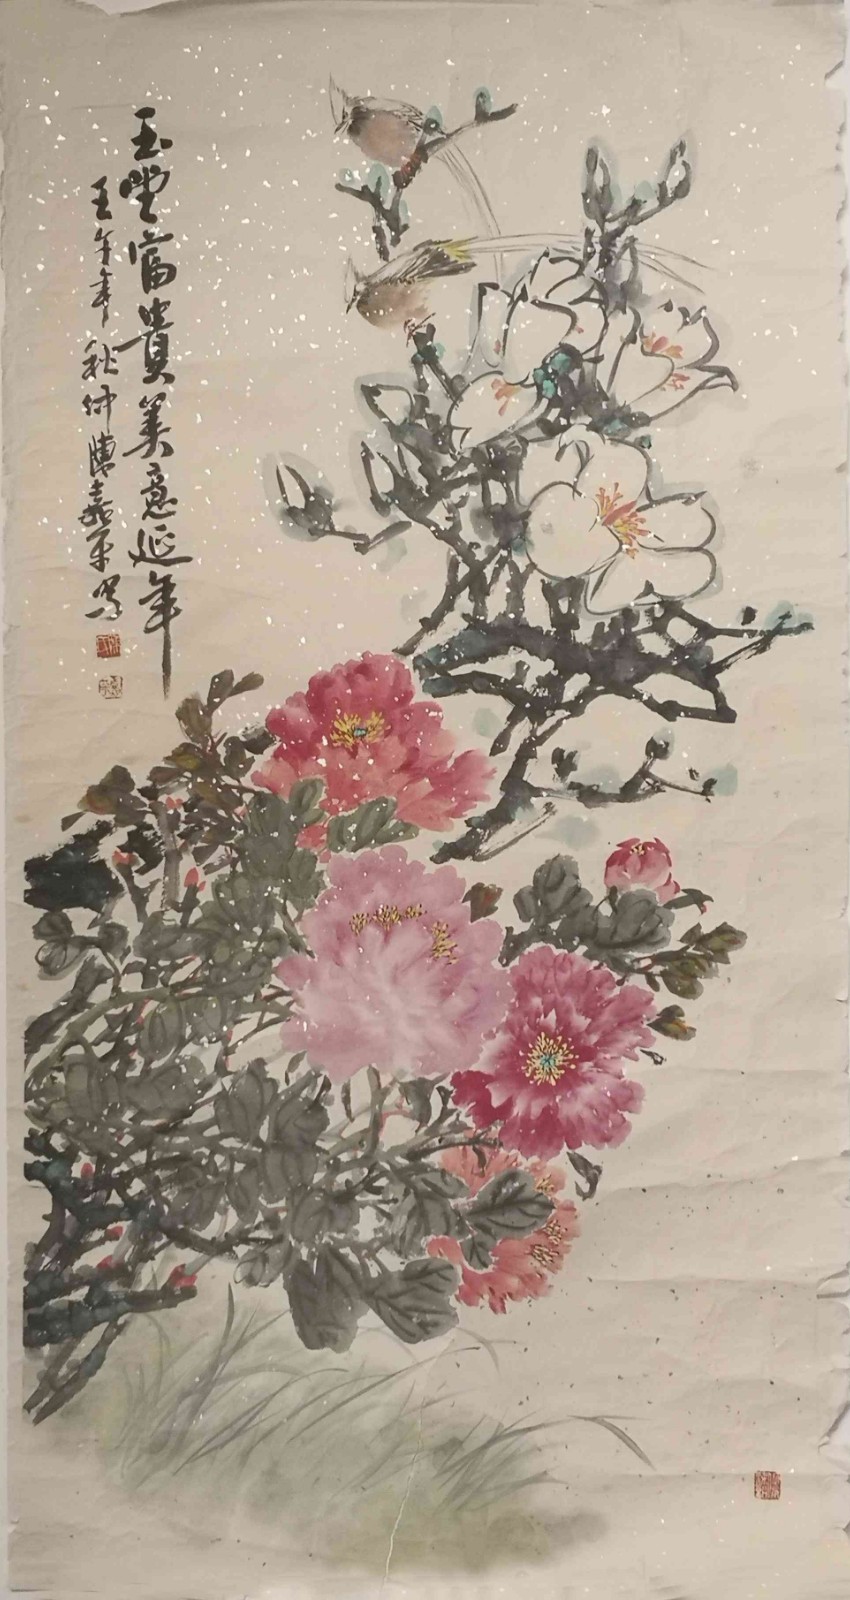 玉堂富貴美意延年
壬午年秋仲陳嘉平写